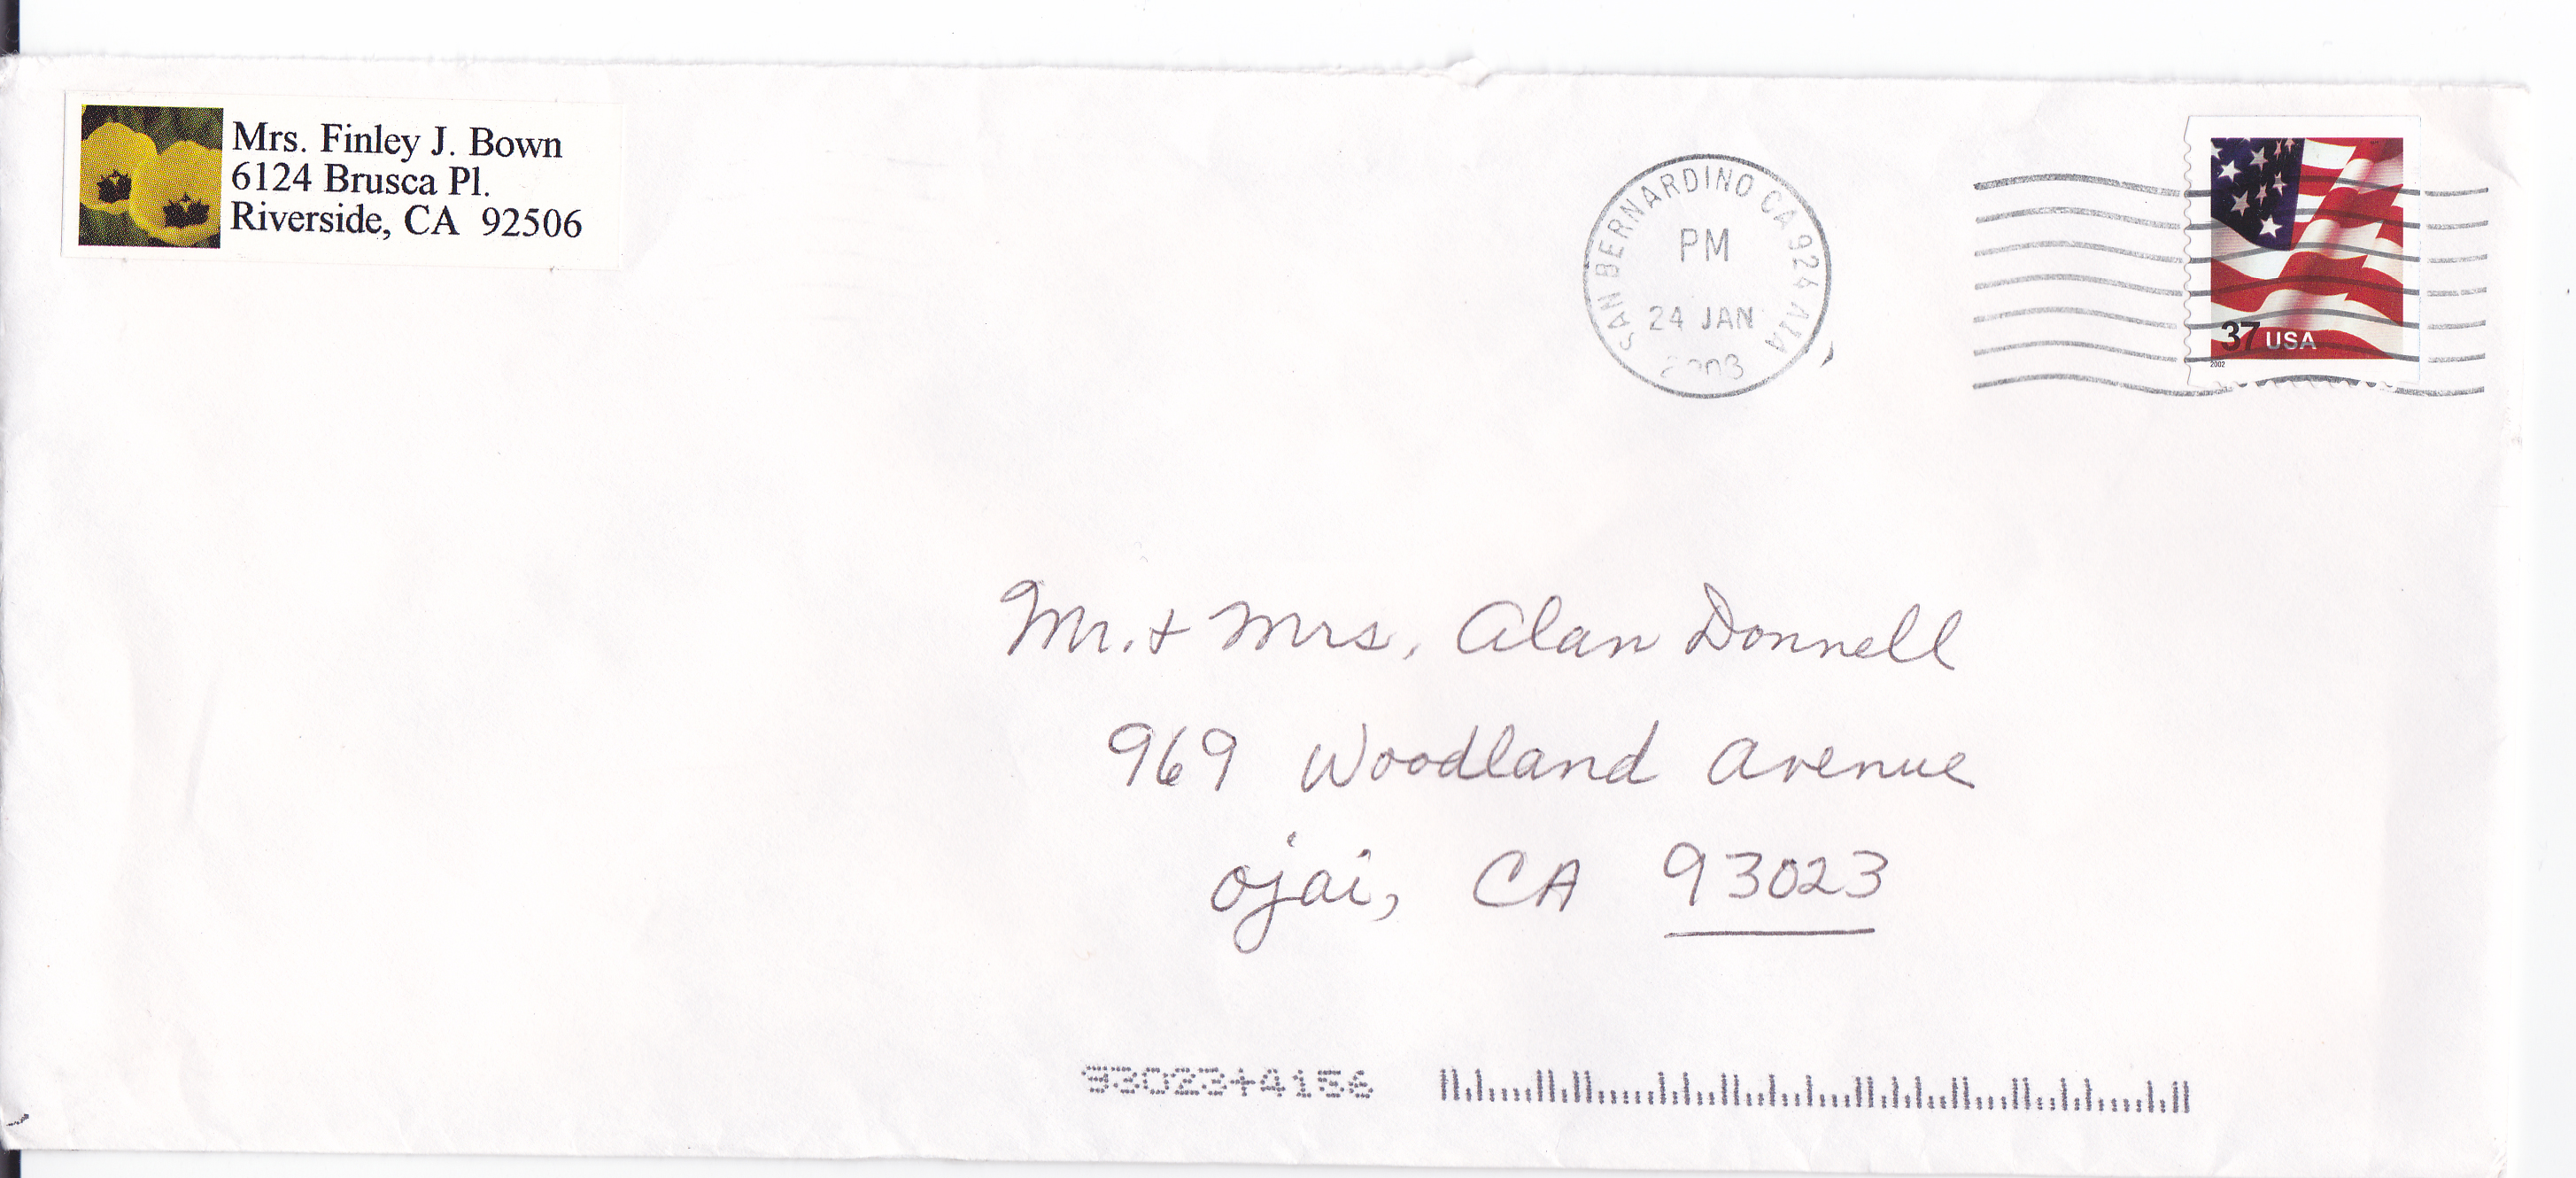 Mrs. Finley J. Bown
6124 Brusca Pl.
Riverside, CA 92506
SAN BERNARDINO CA 924
PM
24 JAN
2003
37 USA
2002
Mr. + Mrs. Alan Donnell
969 Woodland Avenue
Ojai, CA 93023
93023+4156